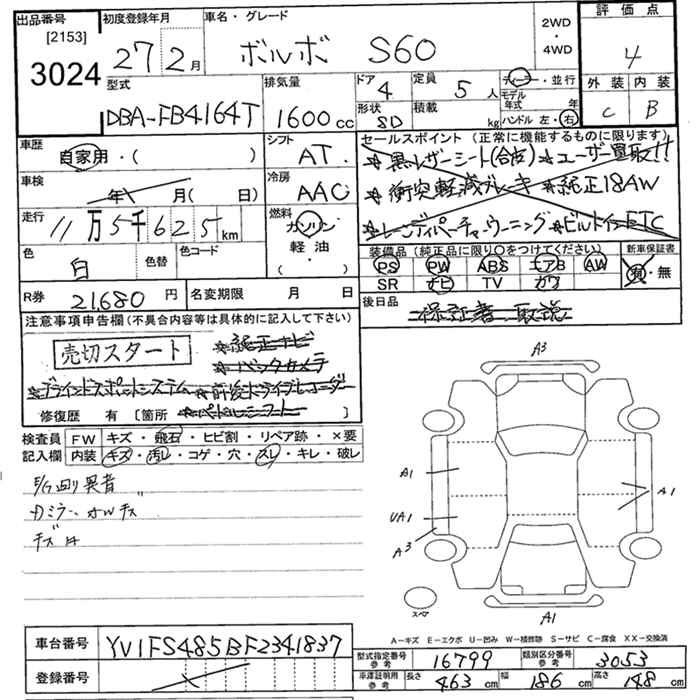 出品番号 初度登録年月 車名・グレード 2WD・4WD 評価点
[2153]
3024 27 2月 ボルボ S60 4
型式 排気量 ドア 定員 ディーラー・並行 外装 内装
DBA-FB4164T 1600cc 4 5人 モデル年式 年 C B
形状 積載 kg ハンドル 左・右
SD
車歴 シフト セールスポイント (正常に機能するものに限ります)
自家用・( ) AT ★黒レザーシート(合皮) ★ユーザー買取!!
車検 年 月(日) 冷房 AAC ★衝突軽減ブレーキ ★純正18AW
走行 11万5千625km 燃料 ガソリン・軽油・( ) ★レーンディパーチャーウーニング ★ビルトインETC
色 白 色替 色コード 装備品 (純正品に限り○をつけてください) 新車保証書
PS PW ABS エアB AW 有・無
SR ナビ TV カワ
R券 21680円 名変期限 月 日 後日品 保証書 取説
注意事項申告欄(不具合内容等は具体的に記入して下さい)
売切スタート ★純正ナビ
★バックカメラ
★ブラインドスポットシステム ★前後ドライブレコーダー
修復歴 有 [箇所 ★パドルシフト ]
検査員記入欄 FW キズ・飛石・ヒビ割・リペア跡・×要
内装 キズ・汚レ・コゲ・穴・スレ・キレ・破レ
E/G回り異音
カミラー オルキズ
A3
A1
UA1
A3
A1
スペア
A1
A－キズ E－エクボ U－凹み W－補修跡 S－サビ C－腐食 XX－交換済
車台番号 YV1FS485BF2341837
登録番号
型式指定番号 参考 16799 類別区分番号 参考 3053
車庫証明用 参考 長さ 463cm 幅 186cm 高さ 148cm